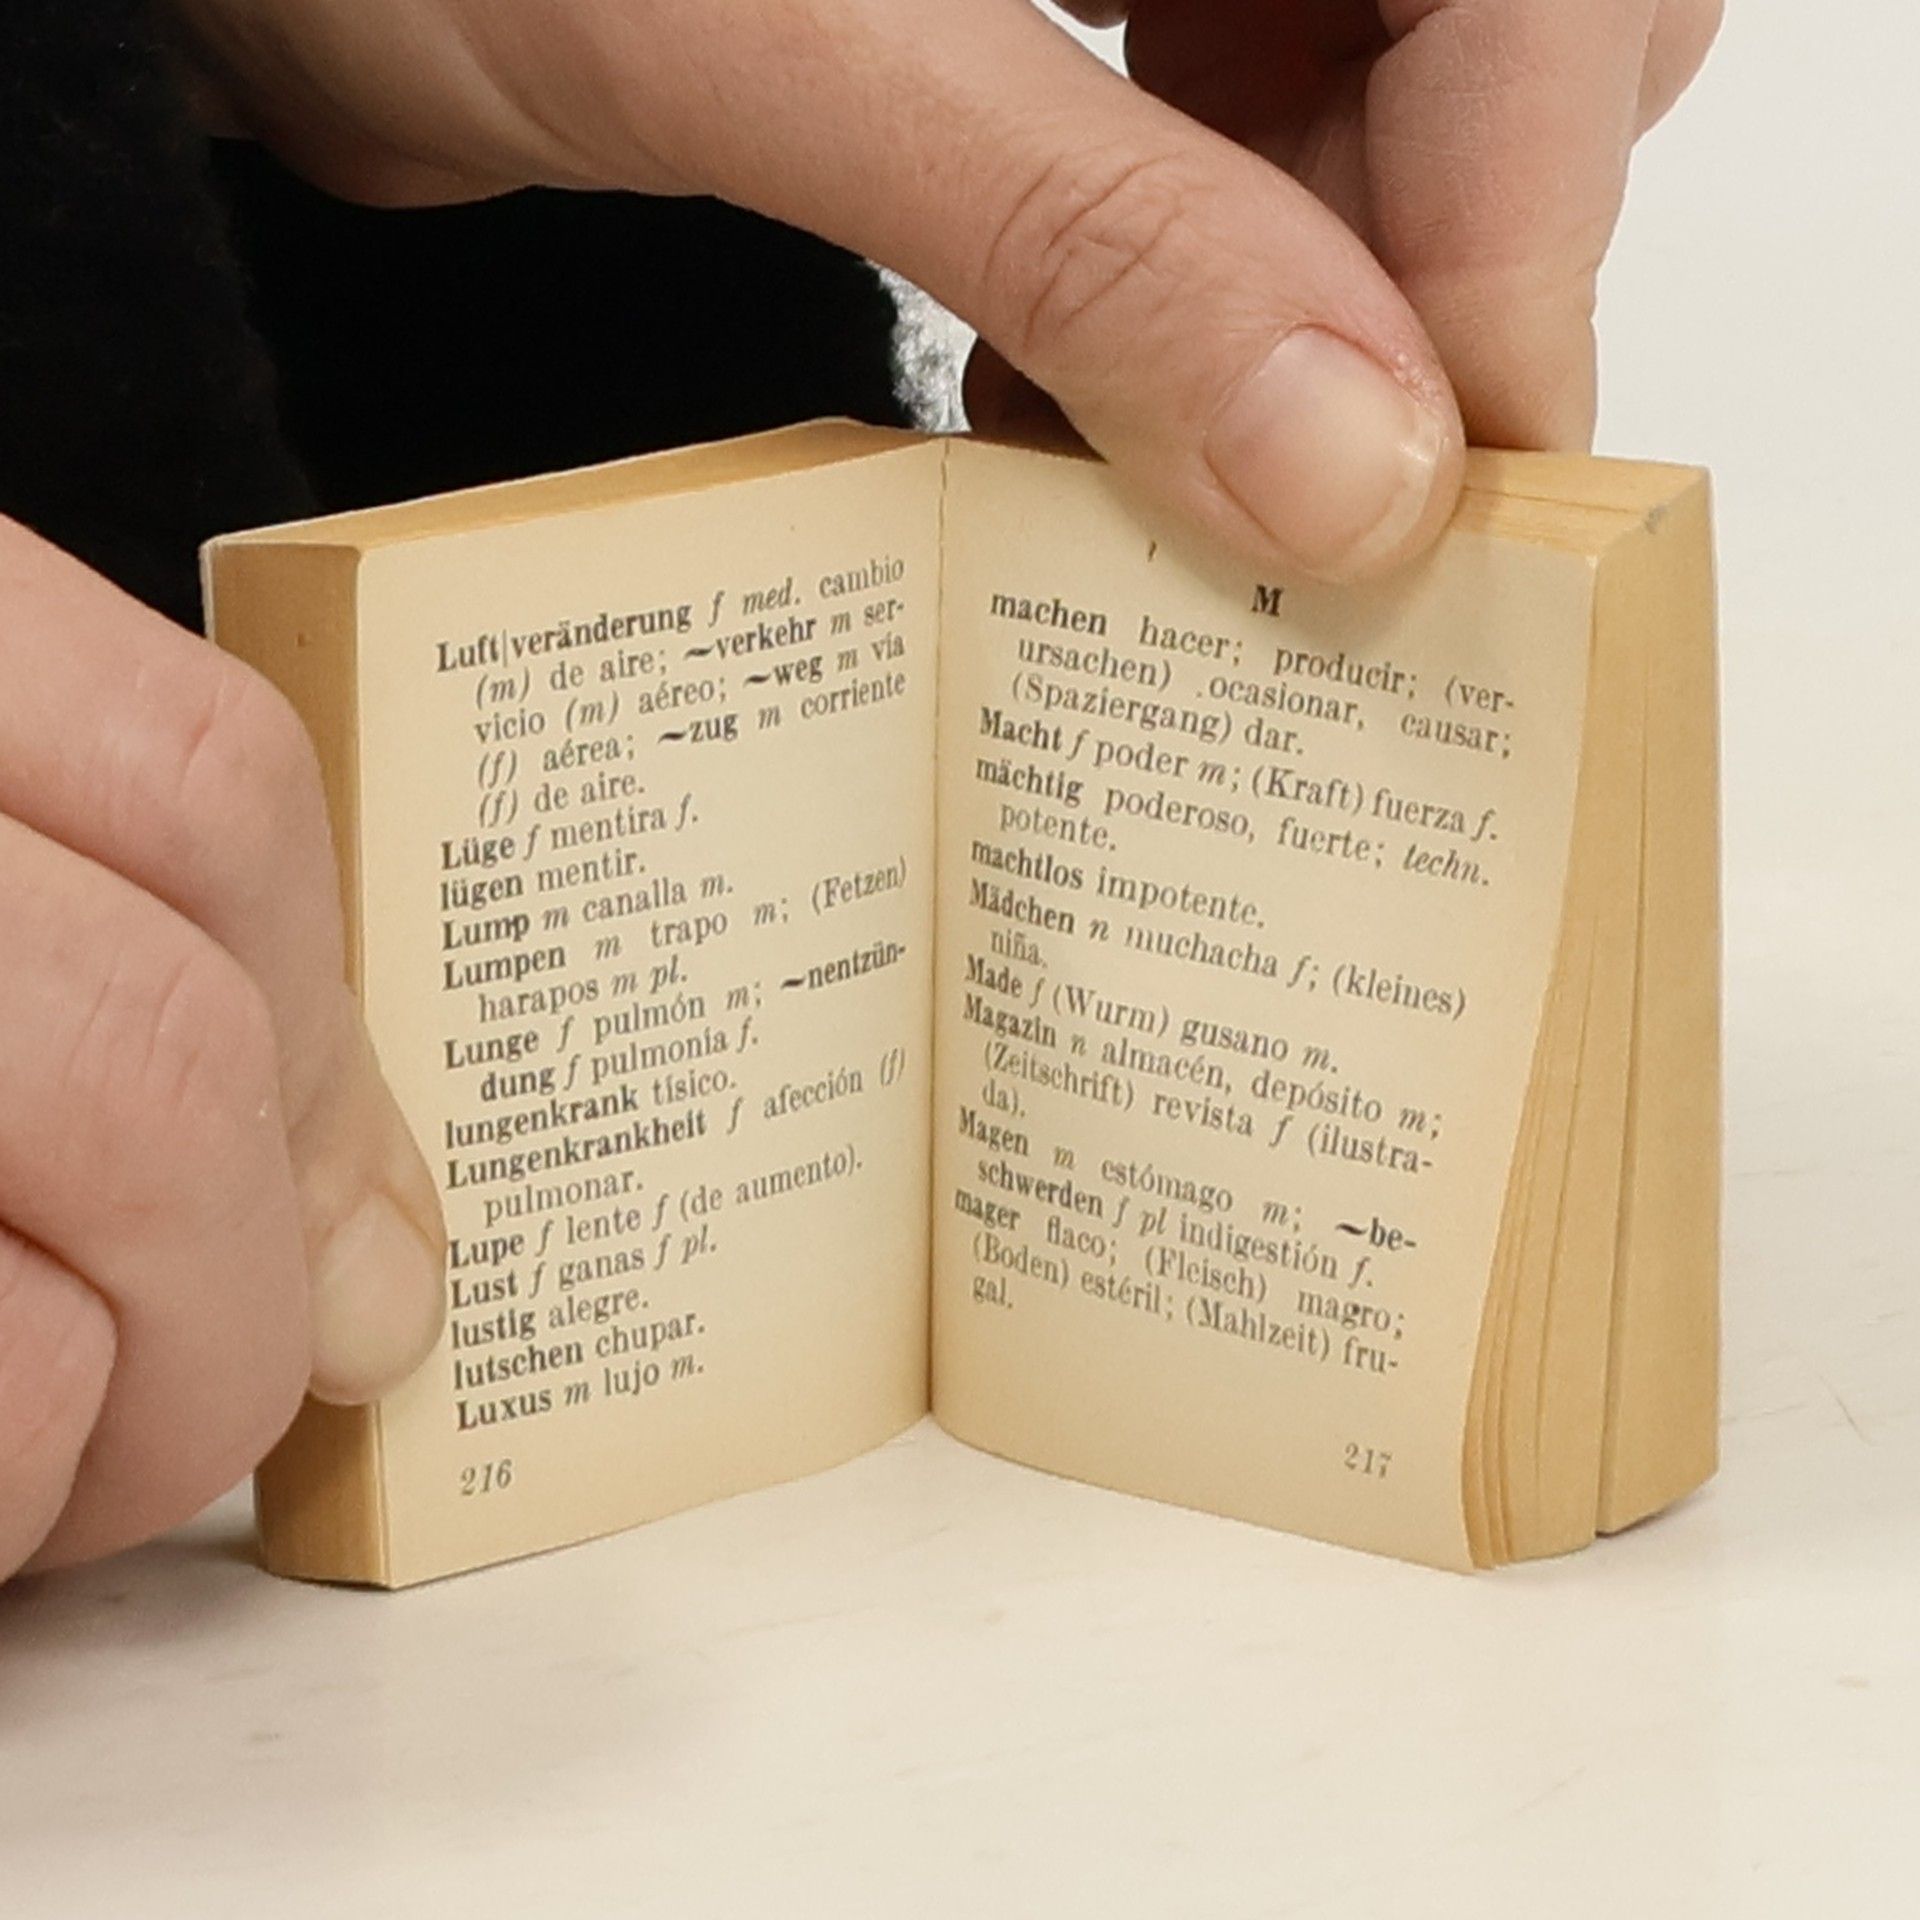 Luft|veränderung f med. cambio
(m) de aire; ~verkehr m ser-
vicio (m) aéreo; ~weg m vía
(f) aérea; ~zug m corriente
(f) de aire.
Lüge f mentira f.
lügen mentir.
Lump m canalla m.
Lumpen m trapo m; (Fetzen)
harapos m pl.
Lunge f pulmón m; ~nentzün-
dung f pulmonía f.
lungenkrank tísico.
Lungenkrankheit f afección (f)
pulmonar.
Lupe f lente f (de aumento).
Lust f ganas f pl.
lustig alegre.
lutschen chupar.
Luxus m lujo m.
216
M
machen hacer; producir; (ver-
ursachen) ocasionar, causar;
(Spaziergang) dar.
Macht f poder m; (Kraft) fuerza f.
mächtig poderoso, fuerte; techn.
potente.
machtlos impotente.
Mädchen n muchacha f; (kleines)
niña.
Made f (Wurm) gusano m.
Magazin n almacén, depósito m;
(Zeitschrift) revista f (ilustra-
da).
Magen m estómago m; ~be-
schwerden f pl indigestión f.
mager flaco; (Fleisch) magro;
(Boden) estéril; (Mahlzeit) fru-
gal.
217